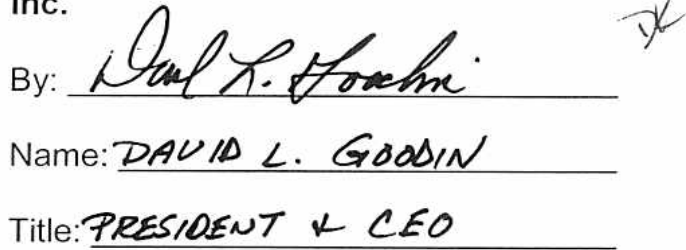 Inc.
By: David L. Goodin
Name: DAVID L. GOODIN
Title: PRESIDENT & CEO